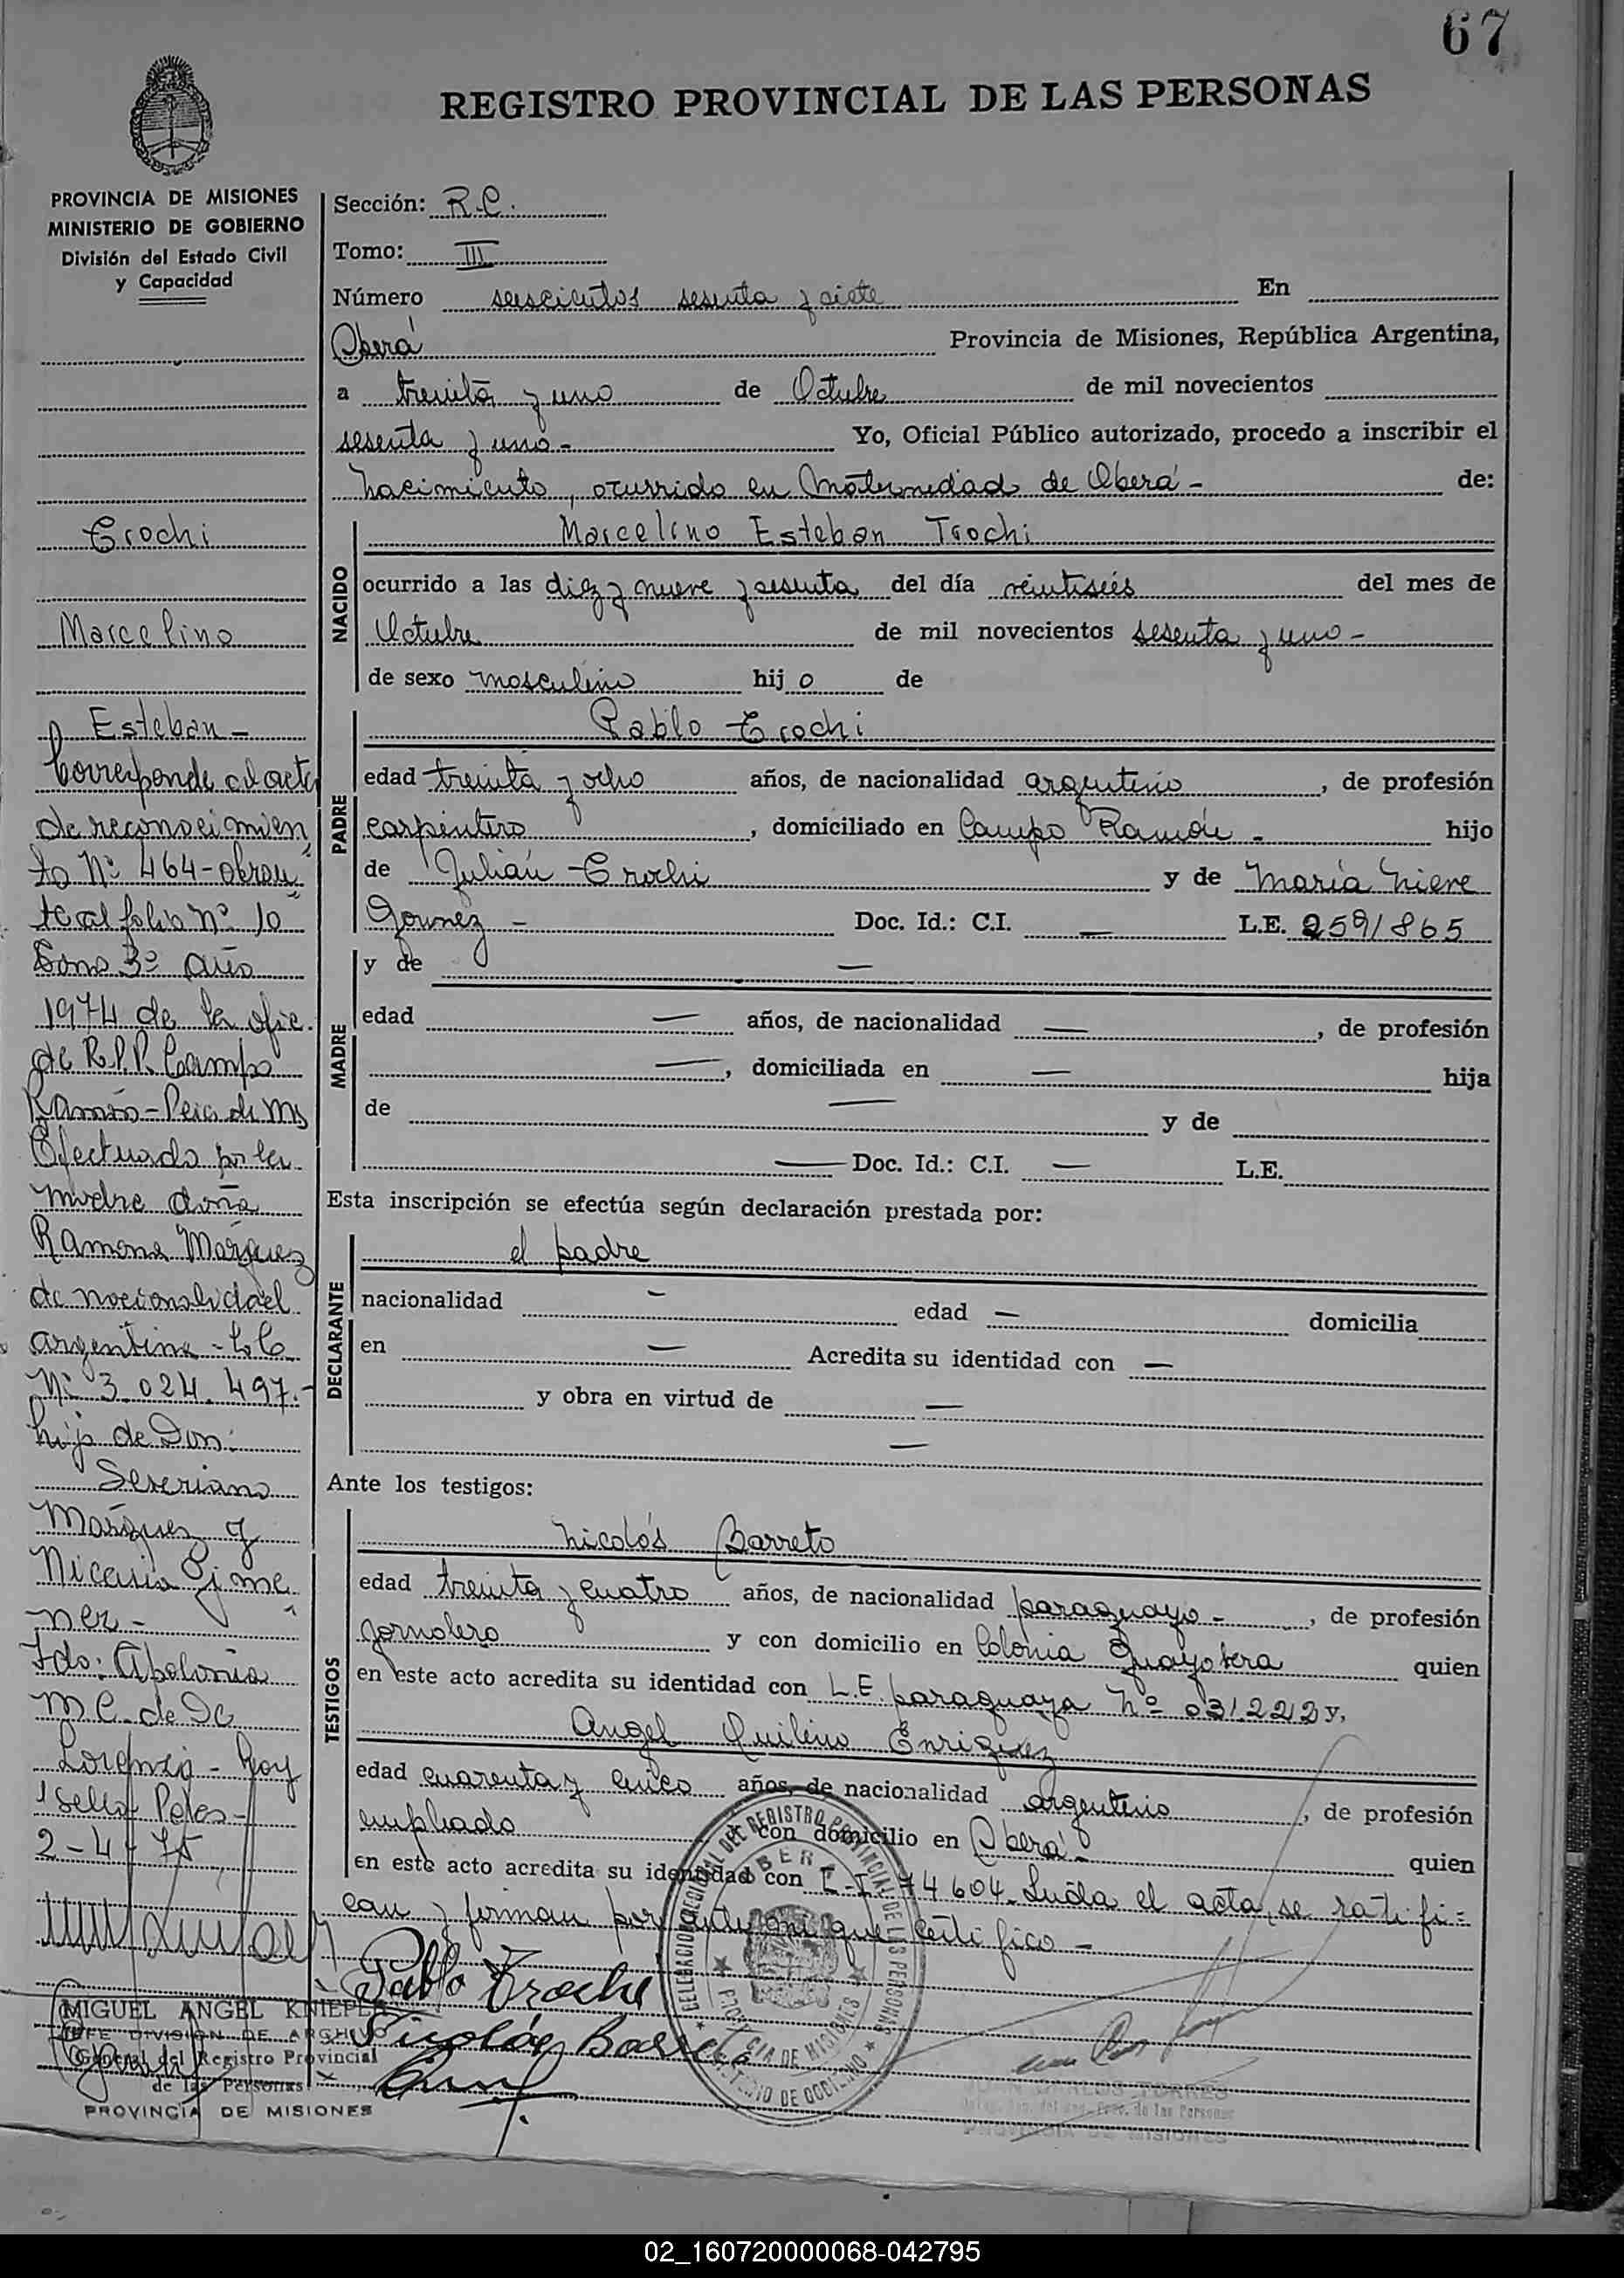 67
REGISTRO PROVINCIAL DE LAS PERSONAS
PROVINCIA DE MISIONES
MINISTERIO DE GOBIERNO
División del Estado Civil
y Capacidad
Trochi
Marcelino
Esteban -
Corresponde al acta
de reconocimien
to Nº 464 - obran
te al folio Nº 10
Tomo 3º año
1974 de la ofic.
de R.P.P. Campo
Ramón - Pcia de Ms
Efectuado por la
madre doña
Ramona Márquez
de nacionalidad
argentina - L.C.
Nº 3.024.497.-
hija de Don:
Severiano
Márquez y
Nicasia Gime
nez -
Fdo: Apolonia
M.C. de Di
Lorenzo - Hay
1 sello Pdas -
2-4-75
MIGUEL ANGEL KNIEPER
JEFE DIVISION DE ARCHIVO
General del Registro Provincial
de las Personas
PROVINCIA DE MISIONES
Sección: R.C.
Tomo: III
Número seiscientos sesenta y siete En
Oberá Provincia de Misiones, República Argentina,
a treinta y uno de Octubre de mil novecientos
sesenta y uno - Yo, Oficial Público autorizado, procedo a inscribir el
nacimiento, ocurrido en Maternidad de Oberá - de:
NACIDO
Marcelino Esteban Trochi
ocurrido a las diez y nueve y sesenta del día veintiseis del mes de
Octubre de mil novecientos sesenta y uno -
de sexo masculino hij o de
PADRE
Pablo Trochi
edad treinta y ocho años, de nacionalidad argentino, de profesión
carpintero, domiciliado en Campo Ramón - hijo
de Julián Trochi y de María Nieve
Gomez - Doc. Id.: C.I. — L.E. 2591865
MADRE
y de —
edad — años, de nacionalidad —, de profesión
—, domiciliada en — hija
de — y de
— Doc. Id.: C.I. — L.E.
Esta inscripción se efectúa según declaración prestada por:
DECLARANTE
el padre
nacionalidad — edad — domicilia
en — Acredita su identidad con —
y obra en virtud de —
—
Ante los testigos:
TESTIGOS
Nicolás Barreto
edad treinta y cuatro años, de nacionalidad paraguayo -, de profesión
jornalero y con domicilio en Colonia Guayabera quien
en este acto acredita su identidad con L.E. paraguaya Nº 031.222 y,
Angel Quilino Enriquez
edad cuarenta y cinco años, de nacionalidad argentino, de profesión
empleado y con domicilio en Oberá - quien
en este acto acredita su identidad con C.I. 74604. Leída el acta, se ratifi=
can y firman por ante mi que certifico -
Pablo Troche
Nicolás Barreto
DELEGACION REGIONAL DEL REGISTRO PROVINCIAL DE LAS PERSONAS
OBERA
PROVINCIA DE MISIONES
MINISTERIO DE GOBIERNO
JUAN CARLOS TORRES
PROVINCIA DE MISIONES
02_160720000068-042795